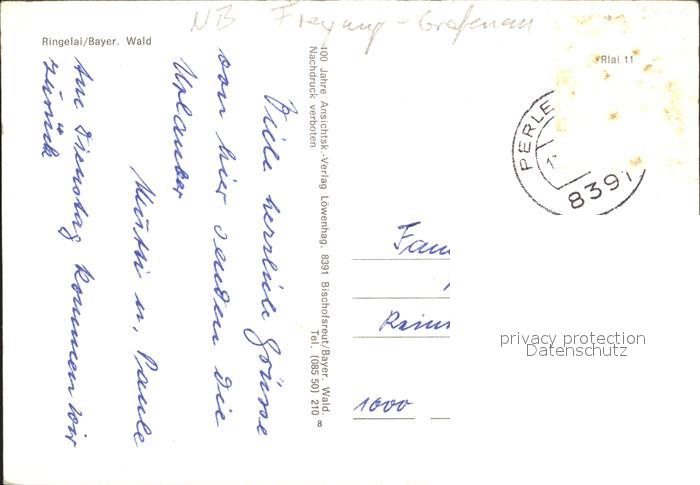 NB Freyung-Grafenau
Ringelai/Bayer. Wald
Rlai 11
PERLE
8391
Viele herzliche Grüsse
von hier senden die
Urlauber
Mutti u. Paule
Am Dienstag kommen wir
zurück
400 Jahre Ansichtsk.-Verlag Löwenhag, 8391 Bischofsreut/Bayer. Wald.
Nachdruck verboten Tel. (085 50) 210
8
Fam
1000
privacy protection
Datenschutz